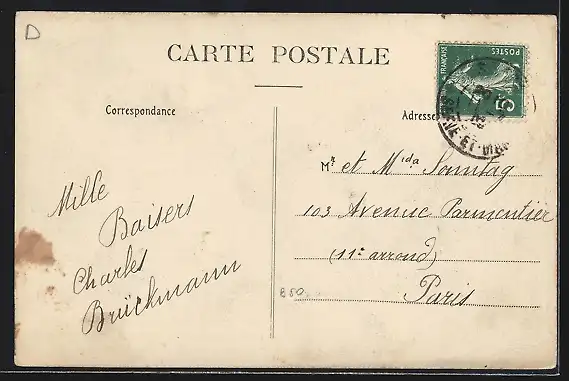 D
CARTE POSTALE
Correspondance
Adresse
FRANÇAISE
POSTES
5
Mille
Baisers
Charles
Brückmann
Mr et Mida Sonntag
103 Avenue Parmentier
(11e arrond)
Paris
850